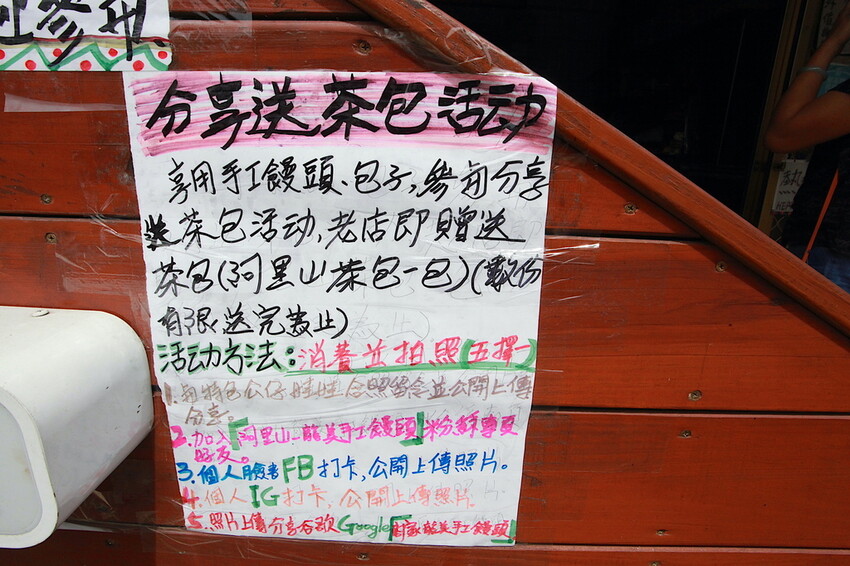 分享送茶包活动
享用手工饅頭、包子,參與分享
送茶包活动,老店即贈送
茶包(阿里山茶包一包)(數份
有限,送完為止)
活动方法:消費並拍照(五擇一)
1.與特色公仔娃娃合照留念並公開上傳
分享。
2.加入「阿里山_龍美手工饅頭」粉絲專頁
好友。
3.個人臉書FB打卡,公開上傳照片。
4.個人IG打卡,公開上傳照片.
5.照片上傳分享谷歌Google「龍美手工饅頭」